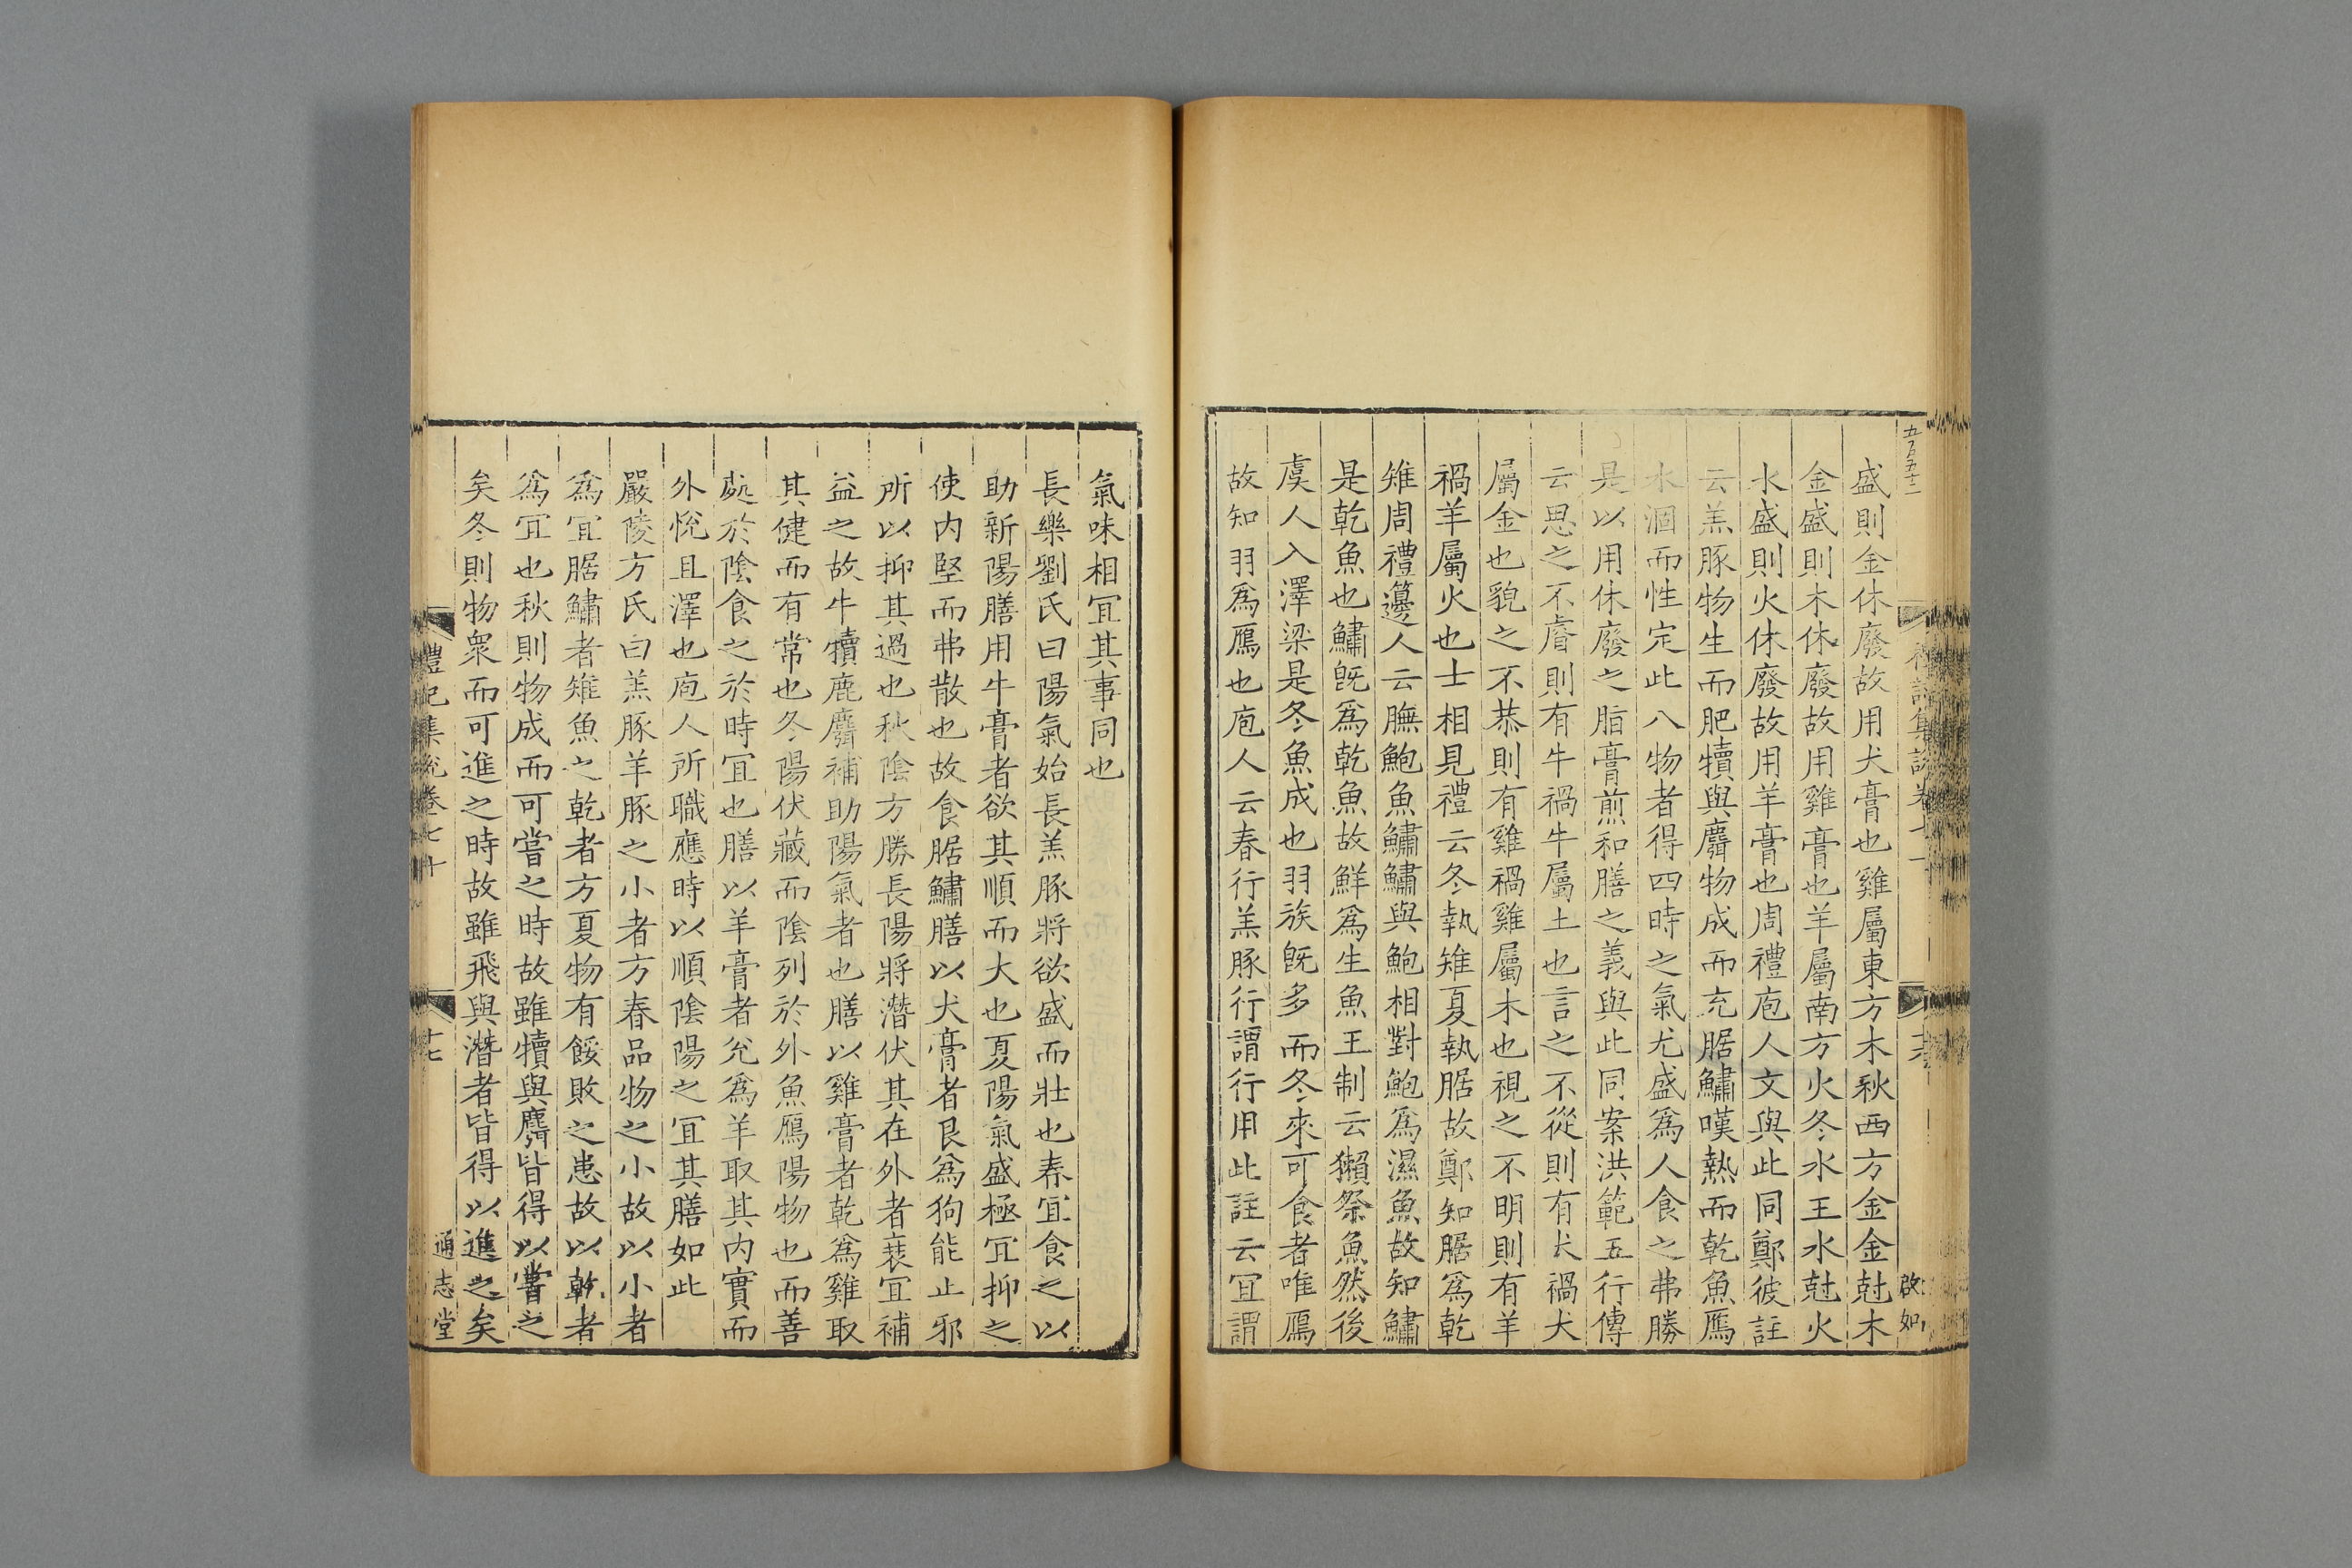 五百五十二
啟如
盛則金休廢故用犬膏也雞屬東方木秋西方金金尅木
金盛則木休廢故用雞膏也羊屬南方火冬水王水尅火
水盛則火休廢故用羊膏也周禮庖人文與此同鄭彼註
云羔豚物生而肥犢與麛物成而充腒鱐暵熱而乾魚鴈
水涸而性定此八物者得四時之氣尤盛為人食之弗勝
是以用休廢之脂膏煎和膳之義與此同案洪範五行傳
云思之不睿則有牛禍牛屬土也言之不從則有犬禍犬
屬金也貌之不恭則有雞禍雞屬木也視之不明則有羊
禍羊屬火也士相見禮云冬執雉夏執腒故鄭知腒為乾
雉周禮籩人云膴鮑魚鱐鱐與鮑相對鮑為濕魚故知鱐
是乾魚也鱐旣為乾魚故鮮為生魚王制云獺祭魚然後
虞人入澤梁是冬魚成也羽族旣多而冬來可食者唯鴈
故知羽為鴈也庖人云春行羔豚行謂行用此註云冝謂
氣味相冝其事同也
長樂劉氏曰陽氣始長羔豚將欲盛而壯也春冝食之以
助新陽膳用牛膏者欲其順而大也夏陽氣盛極冝抑之
使内堅而弗散也故食腒鱐膳以犬膏者艮為狗能止邪
所以抑其過也秋陰方勝長陽將潛伏其在外者衰冝補
益之故牛犢鹿麛補助陽氣者也膳以雞膏者乾為雞取
其健而有常也冬陽伏藏而陰列於外魚鴈陽物也而善
處於陰食之於時冝也膳以羊膏者兌為羊取其内實而
外悅且澤也庖人所職應時以順陰陽之冝其膳如此
嚴陵方氏曰羔豚羊豚之小者方春品物之小故以小者
為冝腒鱐者雉魚之乾者方夏物有餒敗之患故以乾者
為冝也秋則物成而可嘗之時故雖犢與麛皆得以嘗之
矣冬則物衆而可進之時故雖飛與潛者皆得以進之矣
禮記集說卷七十
十七
通志堂